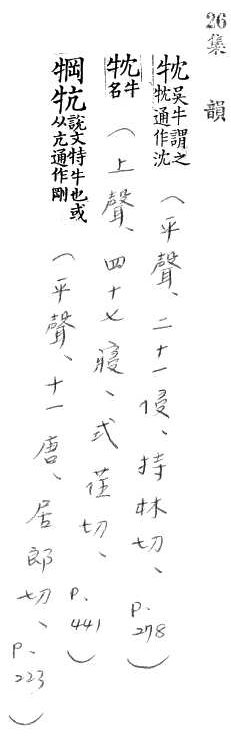 26 集韻
牞 吳牛謂之牞通作沈 （平聲、二十一侵、持林切、P.278）
牞 牛名 （上聲、四十七寑、式荏切、P.441）
犅 牨 說文特牛也或从亢通作剛 （平聲、十一唐、居郎切、P.223）